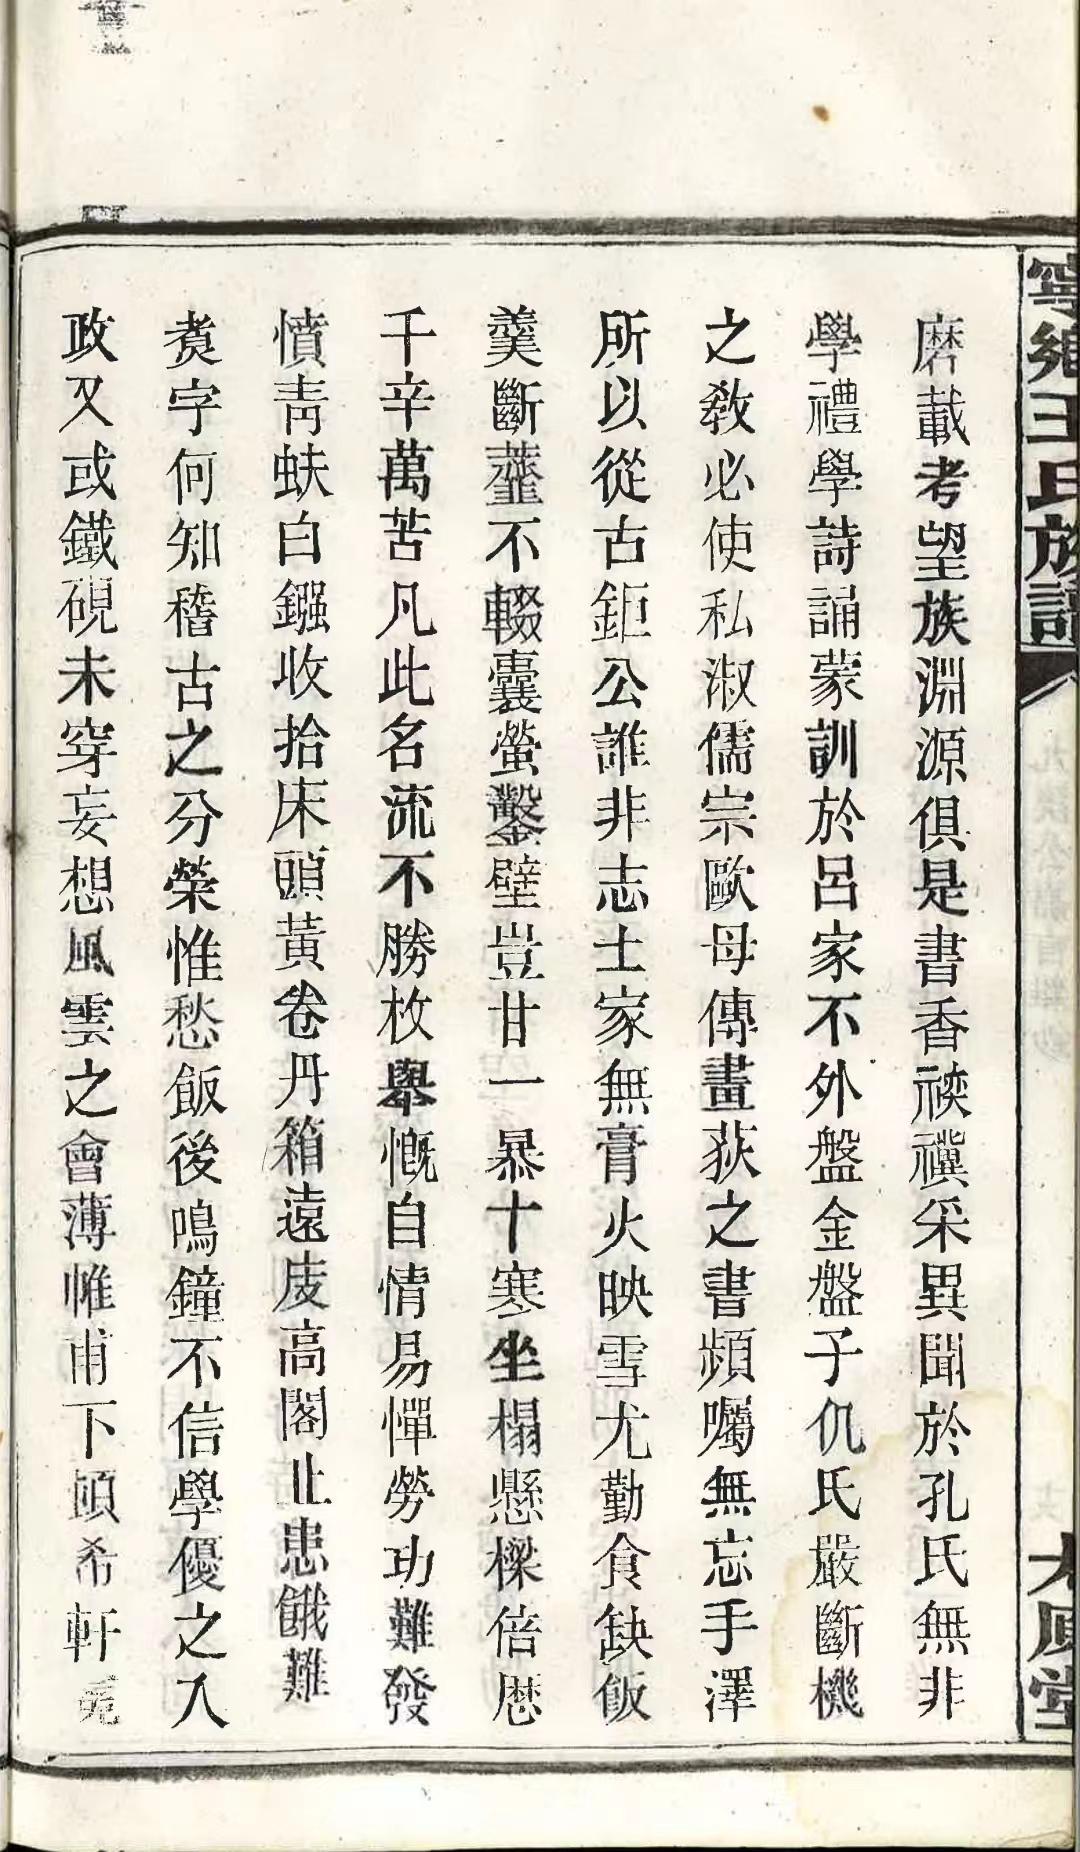 寧鄉王氏族譜
太原堂
磨載考望族淵源俱是書香禖禩采異聞於孔氏無非
學禮學詩誦蒙訓於呂家不外盤金盤子仉氏嚴斷機
之教必使私淑儒宗歐母傳畫荻之書頻囑無忘手澤
所以從古鉅公誰非志士家無膏火映雪尤勤食缺飯
羹斷虀不輟囊螢鑿壁豈甘一暴十寒坐榻懸樑倍歷
千辛萬苦凡此名流不勝枚舉慨自情易憚勞功難發
憤青蚨白鏹收拾床頭黃卷丹箱遠庋高閣止患餓難
煑字何知稽古之分榮惟愁飯後鳴鐘不信學優之入
政又或鐵硯未穿妄想風雲之會薄帷甫下頓希軒冕